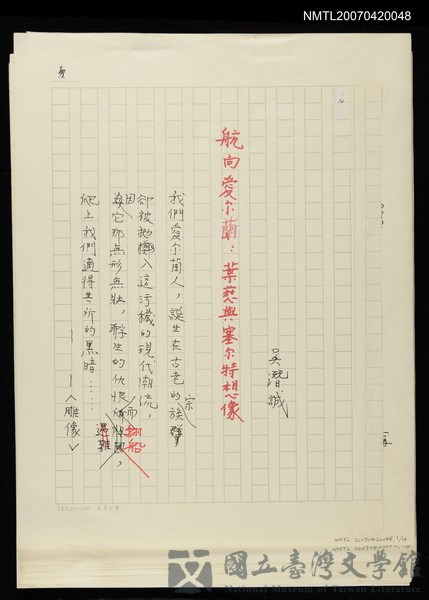 NMTL20070420048
航向愛尔蘭：葉慈與塞尔特想像
吳潛誠
我們愛尔蘭人，誕生在古老的族宗
卻被拋擲入這污穢的現代潮流，
因它那無形無狀，孵生的仇恨而翻船遇難，
爬上我們適得其所的黑暗……
——〈雕像〉
國立臺灣文學館
National Museum of Taiwan Literature